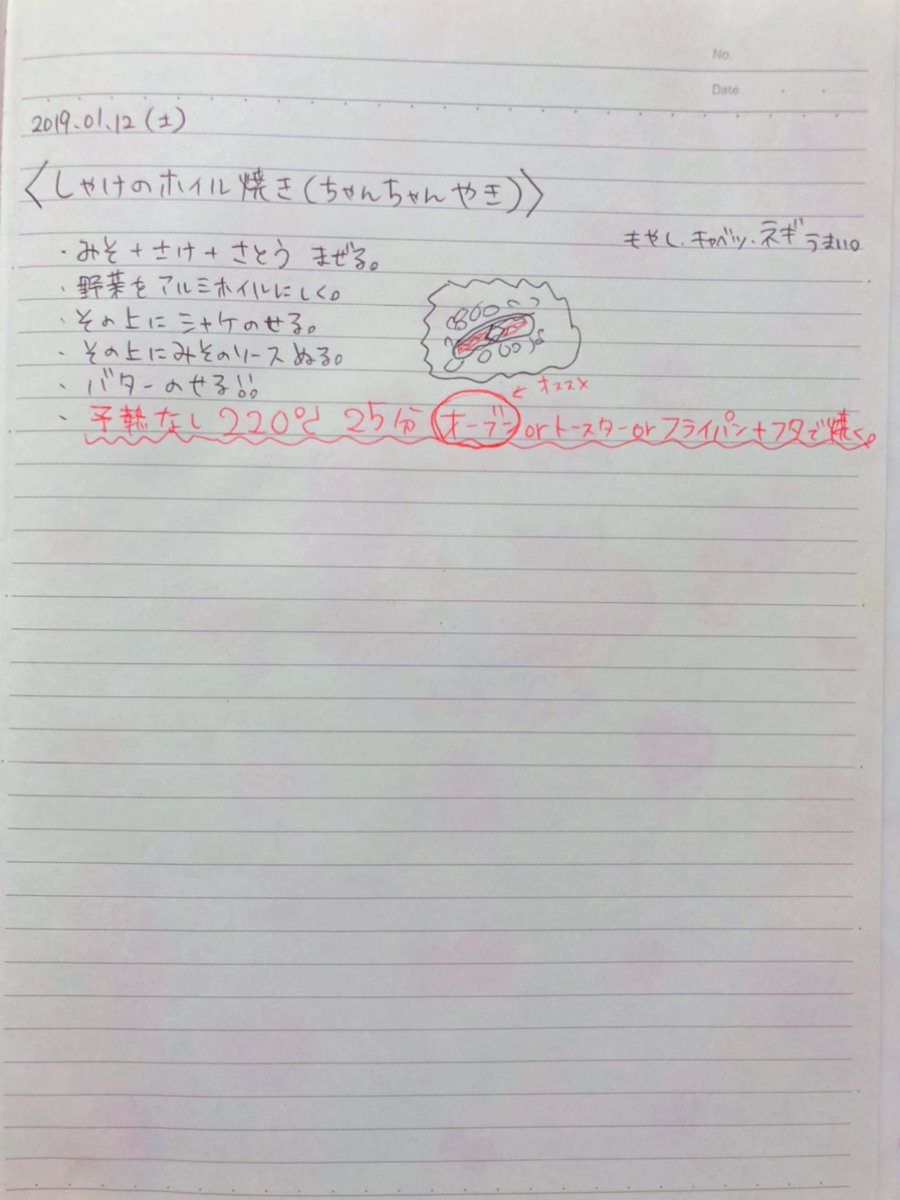 No.
Date
2019.01.12(土)
〈しゃけのホイル焼き(ちゃんちゃんやき)〉
もやし、キャベツ、ネギうまい。
・みそ+さけ+さとう まぜる。
・野菜をアルミホイルにしく。
・その上にシャケのせる。
・その上にみそのソースぬる。
・バターのせる!!
←オススメ
・予熱なし 220℃ 25分 オーブン or トースター or フライパン+フタで焼く。